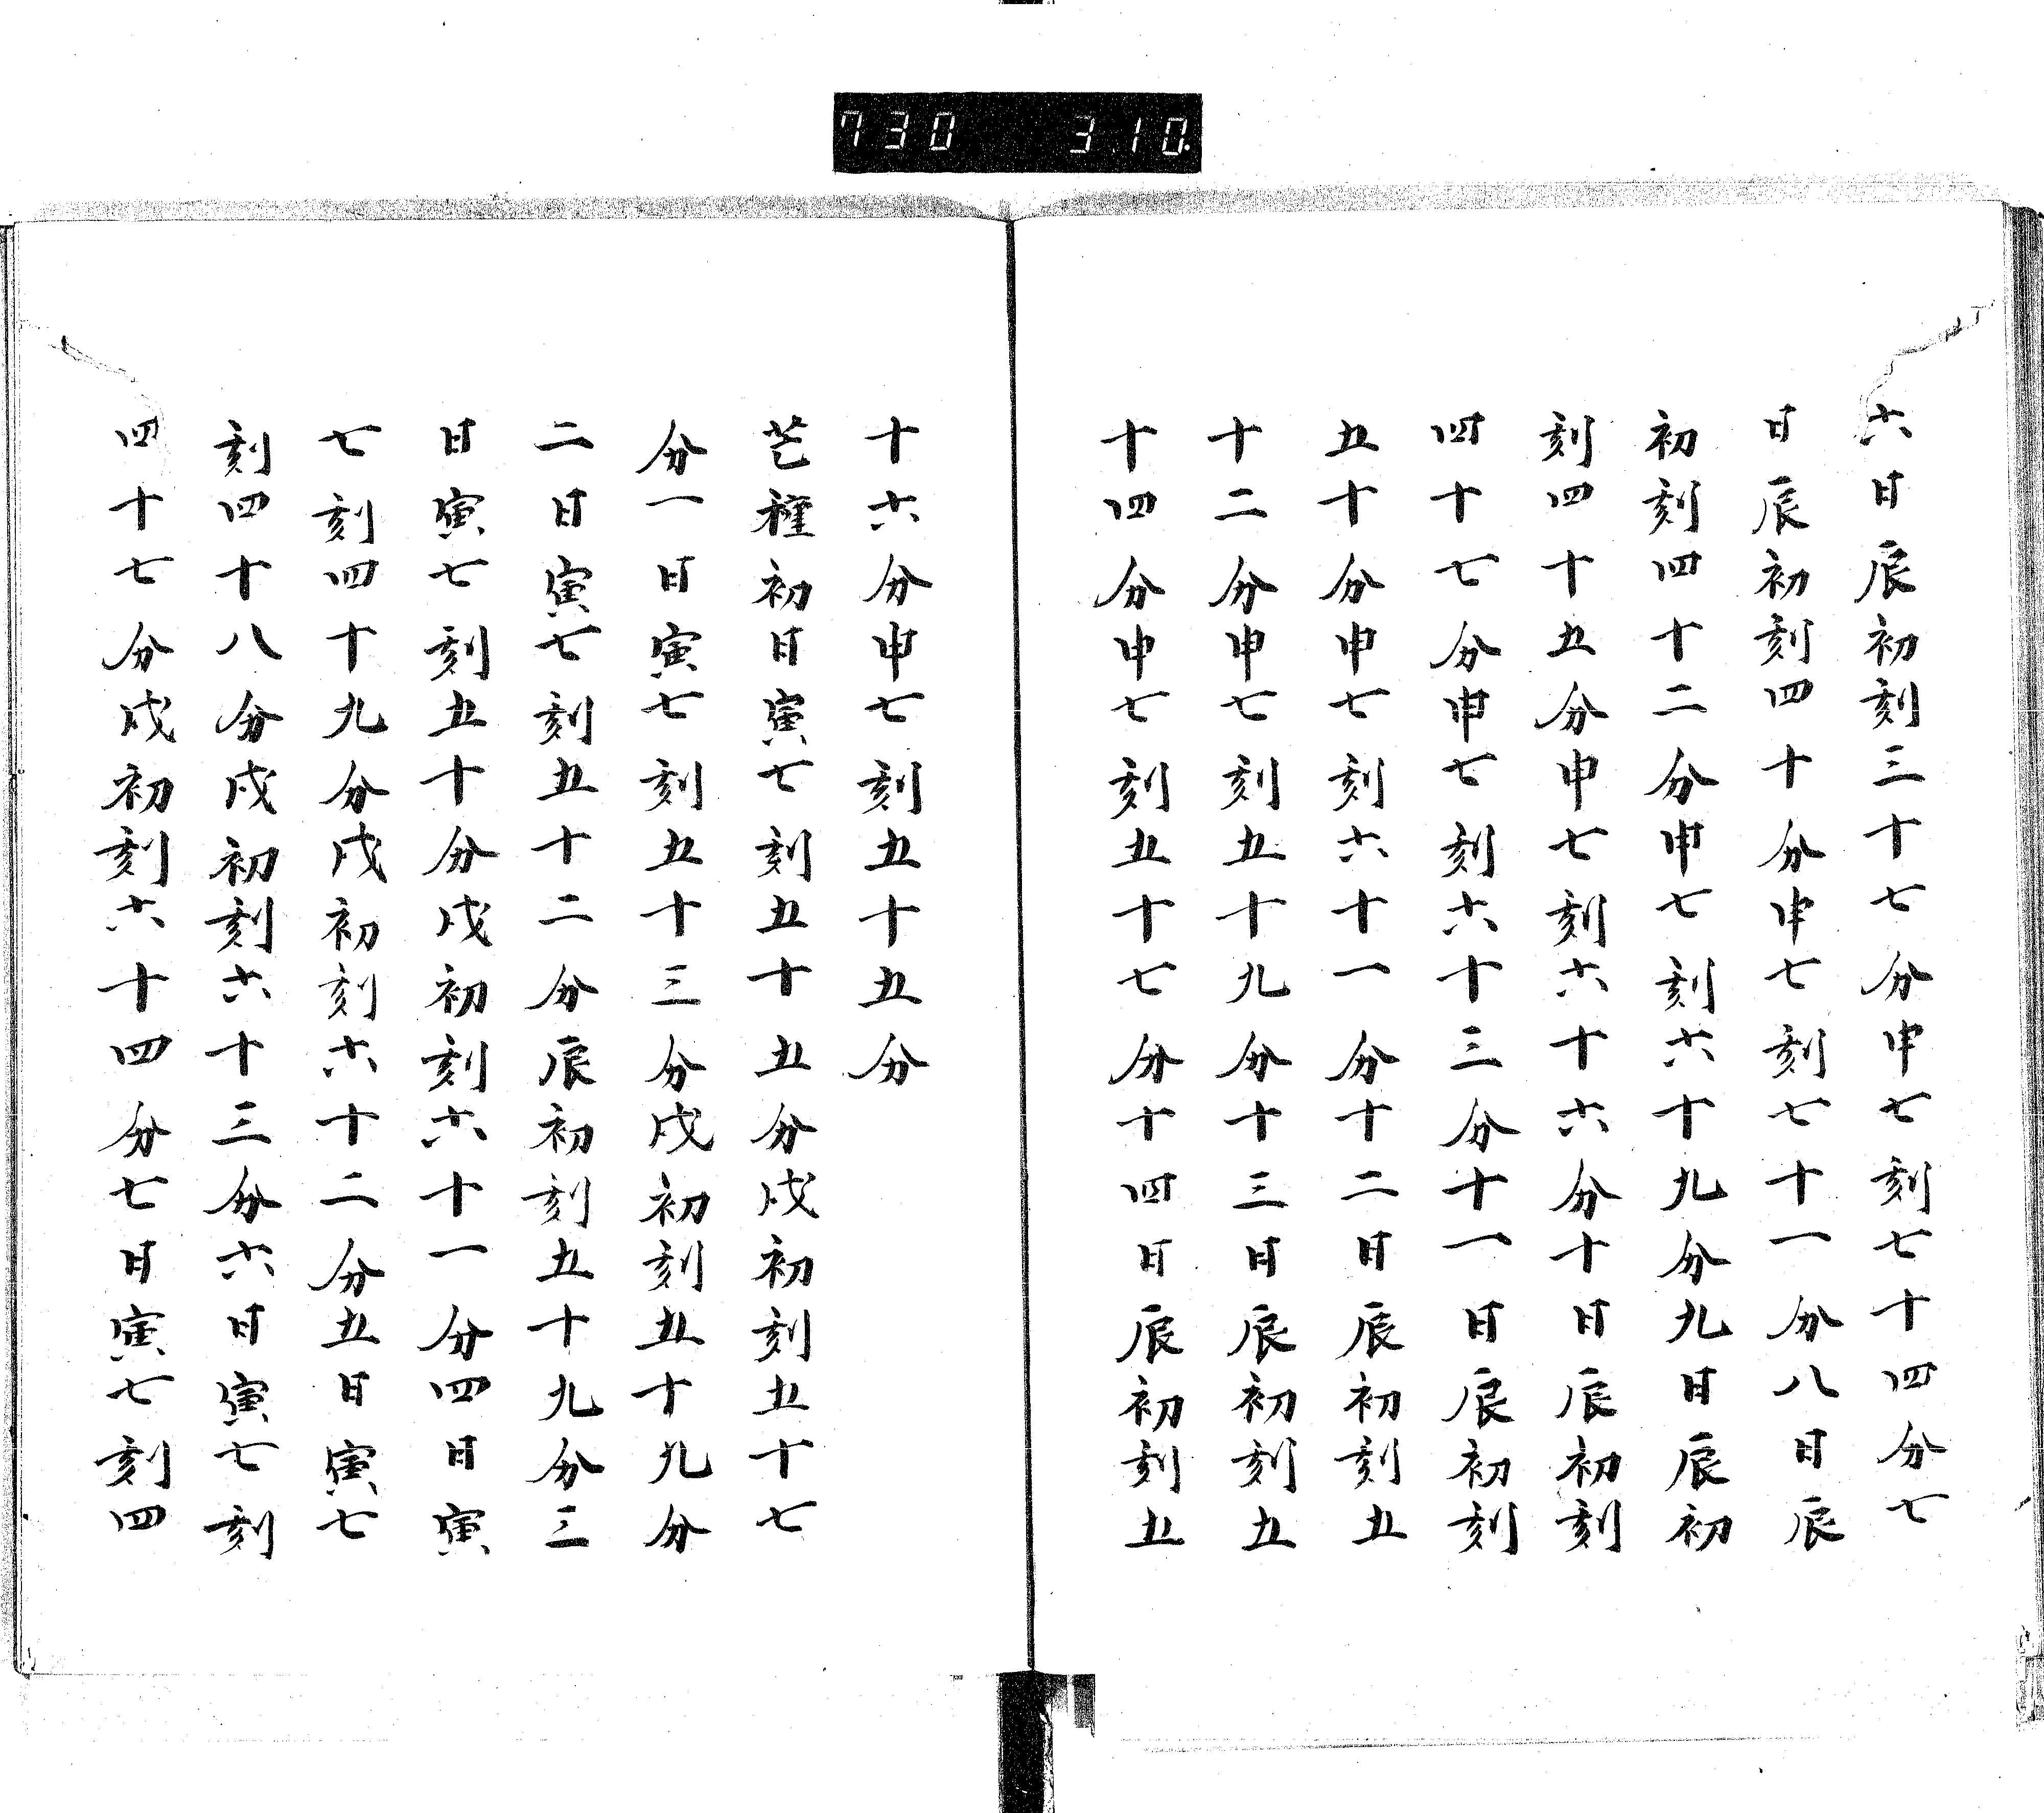 730 310.
六日辰初刻三十七分申七刻七十四分七
日辰初刻四十分申七刻七十一分八日辰
初刻四十二分申七刻六十九分九日辰初
刻四十五分申七刻六十六分十日辰初刻
四十七分申七刻六十三分十一日辰初刻
五十分申七刻六十一分十二日辰初刻五
十二分申七刻五十九分十三日辰初刻五
十四分申七刻五十七分十四日辰初刻五
十六分申七刻五十五分
芒種初日寅七刻五十五分戌初刻五十七
分一日寅七刻五十三分戌初刻五十九分
二日寅七刻五十二分辰初刻五十九分三
日寅七刻五十分戌初刻六十一分四日寅
七刻四十九分戌初刻六十二分五日寅七
刻四十八分戌初刻六十三分六日寅七刻
四十七分戌初刻六十四分七日寅七刻四